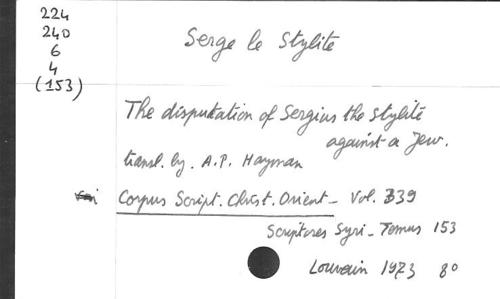 224
240
6
4
(153)
Serge le Stylite
The disputation of Sergius the Stylite
against a Jew.
transl. by. A.P. Hayman
Corpus Script. Christ. Orient - Vol. 339
Scriptores Syri - Tomus 153
Louvain 1973 8o